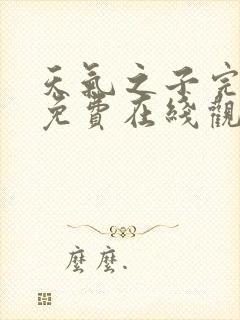 天氣之子完
免費在綫觀
麼麼.